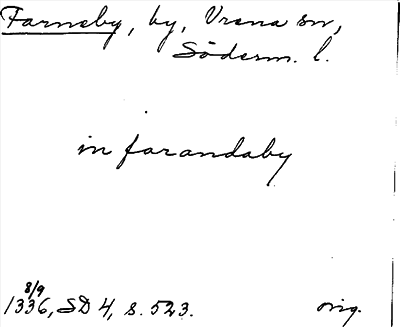 Farneby, by, Vrena sn,
Söderm. l.
in farandaby
8/9
1336, SD 4, s. 523.
orig.